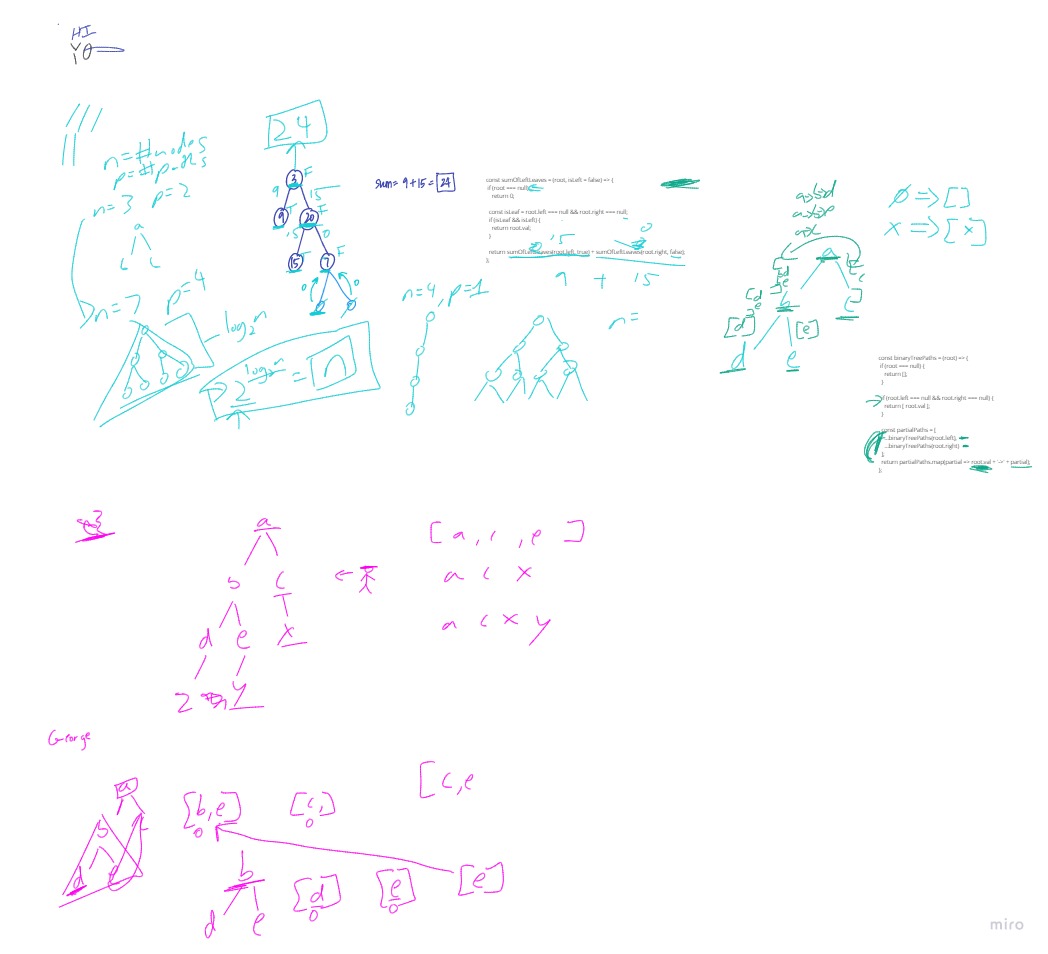 HI
YO
24
n=#nodes
p=#paths
n=3 p=2
a
3 F
9 15
9 T 20 F
15 0
15 T 7 F
0 0
sum= 9+15= 24
const sumOfLeftLeaves = (root, isLeft = false) => {
if (root === null)
return 0;
const isLeaf = root.left === null && root.right === null;
if (isLeaf && isLeft) {
return root.val;
}
15 0
return sumOfLeftLeaves(root.left, true) + sumOfLeftLeaves(root.right, false);
};
9 + 15
n=7 p=4
log₂n
2^log₂n = n
n=4, p=1
n=
∅ => []
x => [x]
a
b c
[d] [e]
d e
const binaryTreePaths = (root) => {
if (root === null) {
return [];
}
if (root.left === null && root.right === null) {
return [ root.val ];
}
const partialPaths = [
...binaryTreePaths(root.left),
...binaryTreePaths(root.right)
];
return partialPaths.map(partial => root.val + '->' + partial);
};
3
a
b c
d e x
2 y
[a, c, e]
a c x
a c x y
George
a
b c
d e
[b,e] [c,]
0 0
[c,e
b
d e
[d] [e] [e]
0 0
miro